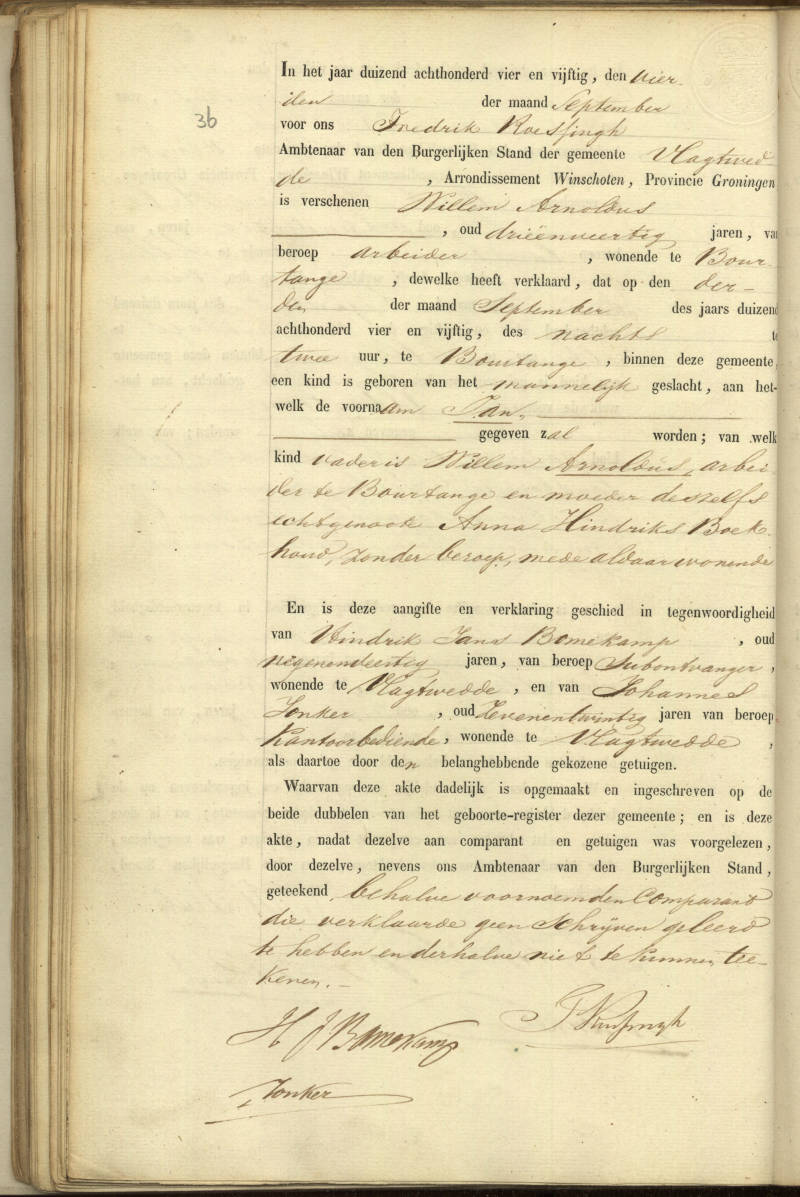 In het jaar duizend achthonderd vier en vijftig, den vier-
den der maand September
36
voor ons Fredrik Roessingh
Ambtenaar van den Burgerlijken Stand der gemeente Vlagtwed
de , Arrondissement Winschoten, Provincie Groningen
is verschenen Willem Arnoldus
, oud drieënveertig jaren, va
beroep arbeider , wonende te Bour
tange , dewelke heeft verklaard, dat op den der-
den der maand September des jaars duizend
achthonderd vier en vijftig, des nachts t
twee uur, te Bourtange , binnen deze gemeente
een kind is geboren van het mannelijk geslacht, aan het-
welk de voornaam Jan,
gegeven zal worden; van welk
kind vader is Willem Arnoldus, arbei
der te Bourtange en moeder deszelfs
echtgenoote Anna Hindriks Boek-
houd, zonder beroep, mede aldaar wonende
En is deze aangifte en verklaring geschied in tegenwoordigheid
van Hindrik Jans Bomekamp , oud
negenendertig jaren, van beroep Subontvanger,
wonende te Vlagtwedde , en van Johannes
Jonker , oud Zevenentwintig jaren van beroep
Kantoorbediende, wonende te Vlagtwedde ,
als daartoe door den belanghebbende gekozene getuigen.
Waarvan deze akte dadelijk is opgemaakt en ingeschreven op de
beide dubbelen van het geboorte-register dezer gemeente; en is deze
akte, nadat dezelve aan comparant en getuigen was voorgelezen,
door dezelve, nevens ons Ambtenaar van den Burgerlijken Stand,
geteekend, behalve voornoemden Comparant
die verklaarde geen Schrijven geleerd
te hebben en derhalve niet te kunnen tee-
kenen.-
H J Bomekamp F Roessingh
Jonker